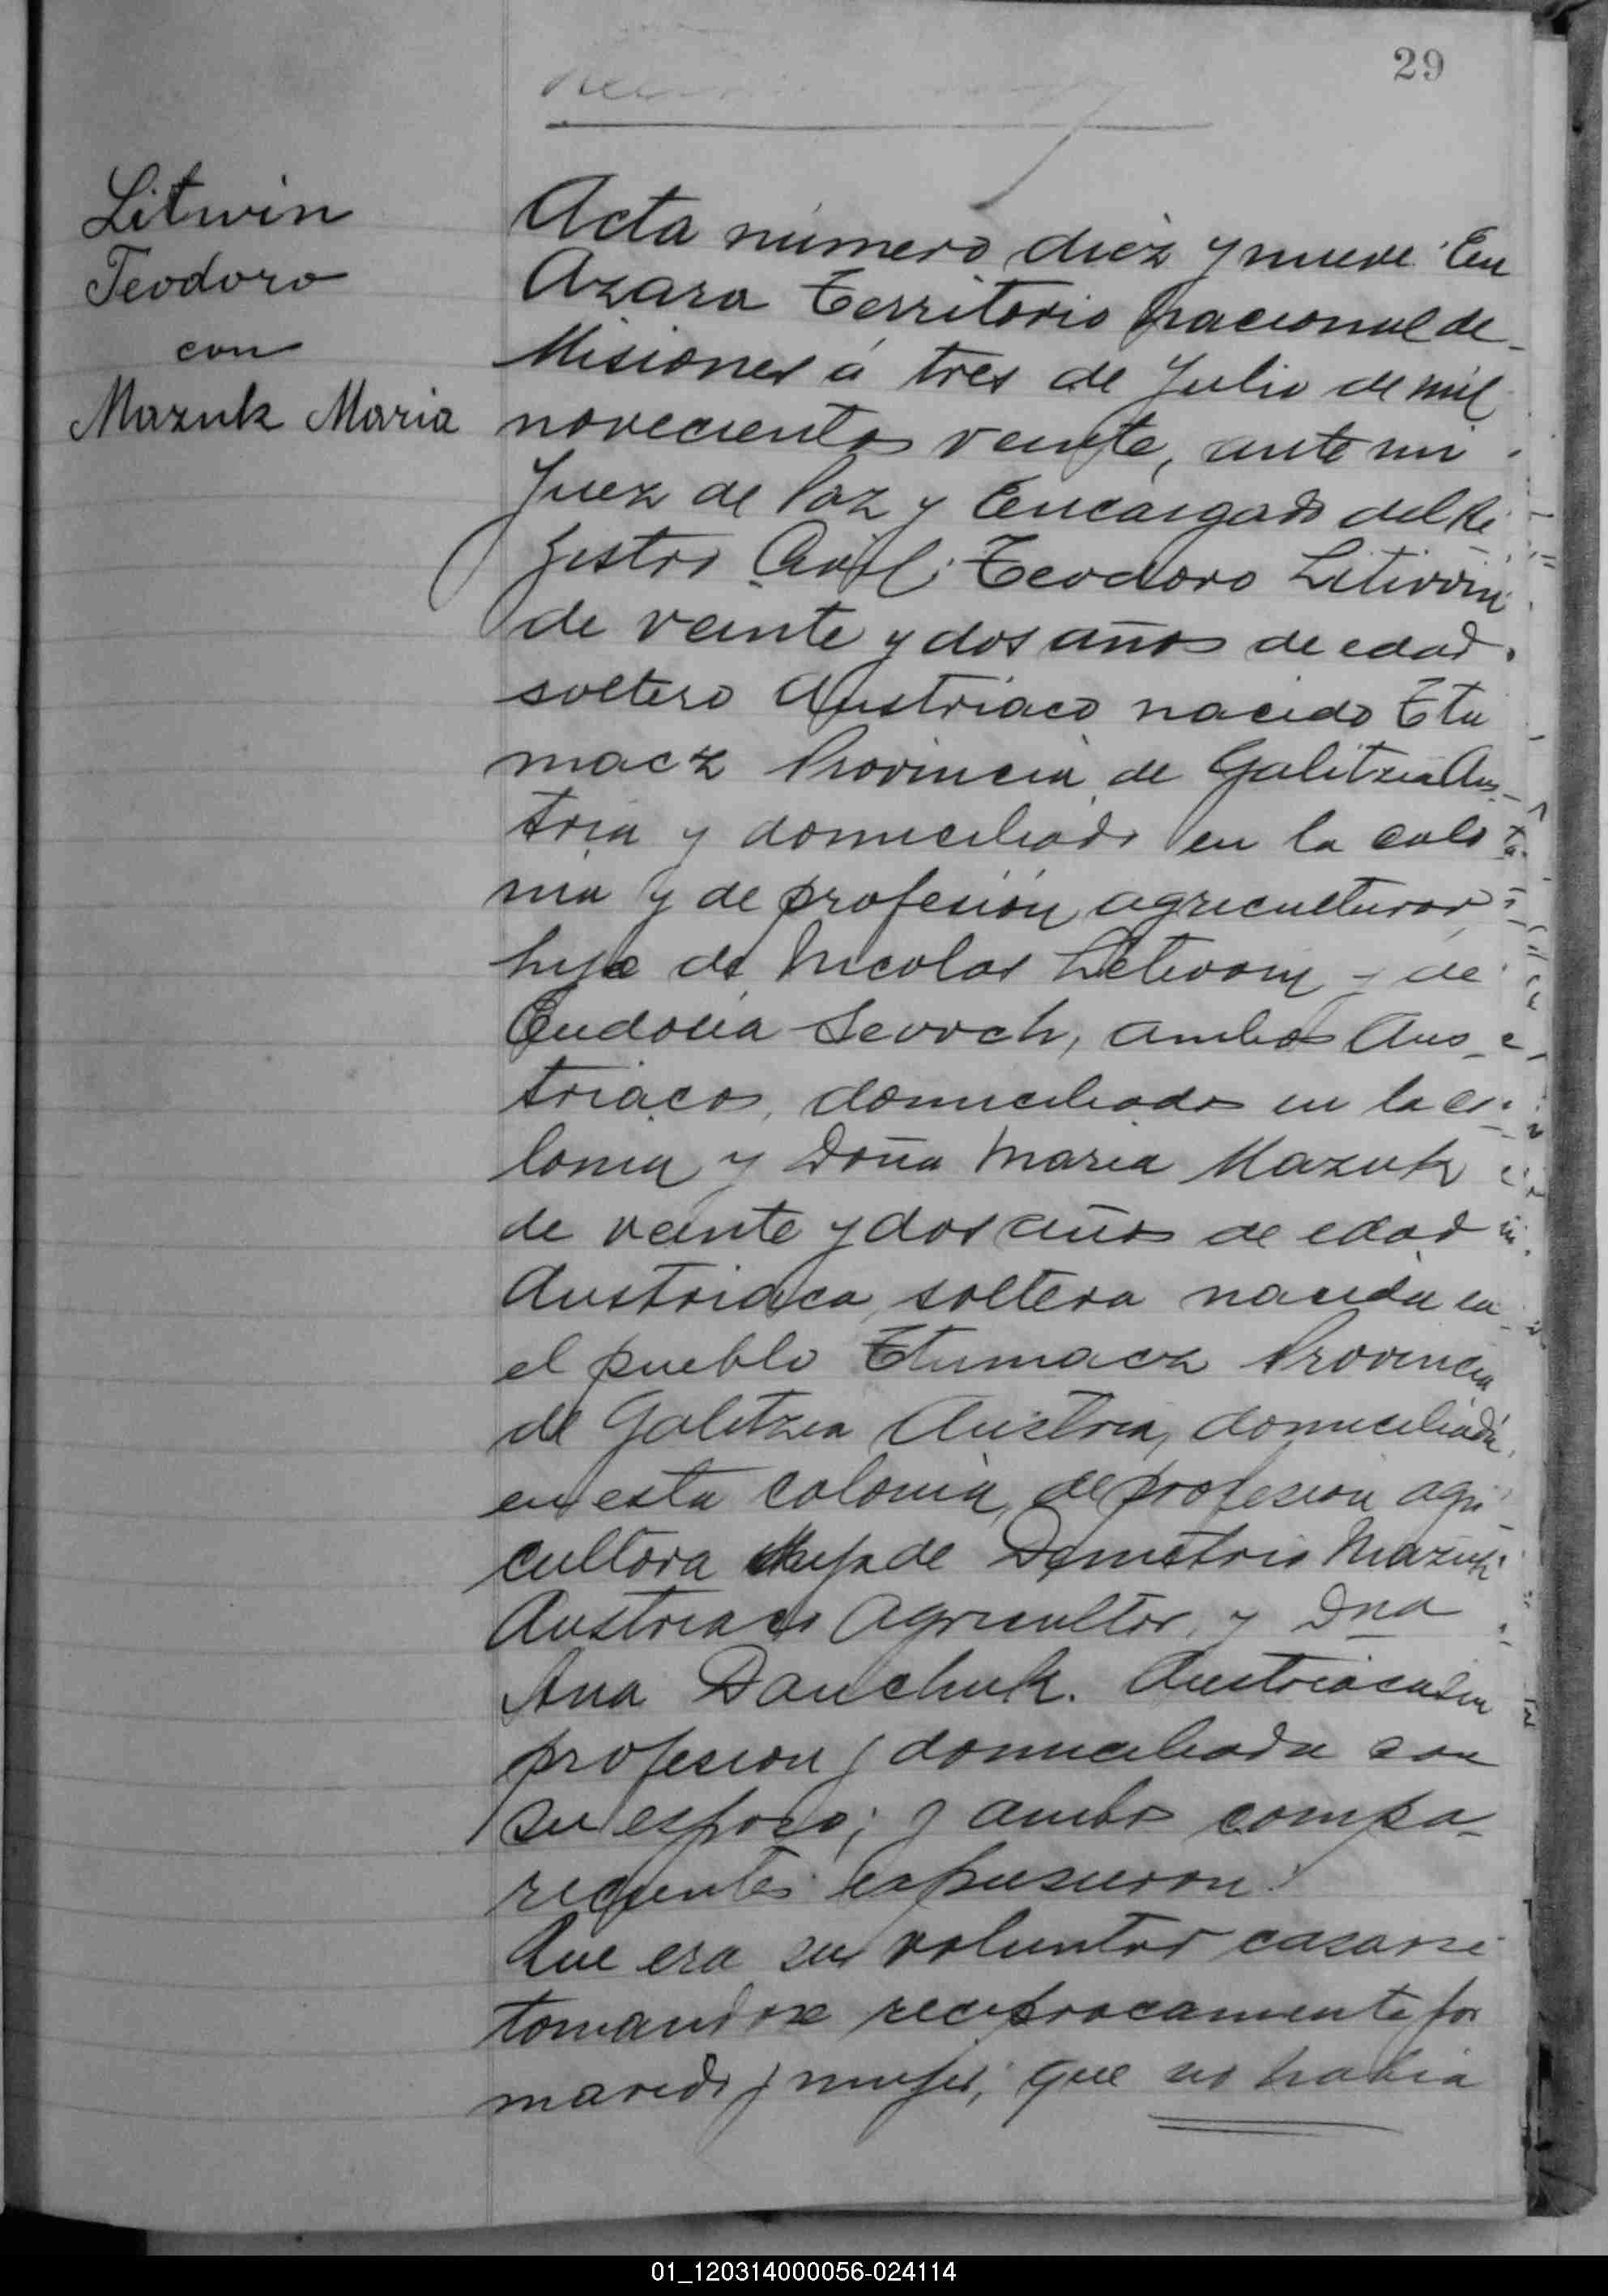 29
Litwin
Teodoro
con
Mazuk Maria
Acta número diez y nueve. En
Azara Territorio Nacional de
Misiones á tres de Julio de mil
novecientos veinte, ante mi
Juez de Paz y Encargado del Re
gistro Civil; Teodoro Litwin
de veinte y dos años de edad
soltero Austriaco nacido Etu
macz Provincia de Galitzia Aus-
tria y domiciliado en la colo
nia y de profesión agricultor
hijo de Nicolas Litwin y de
Eudocia Sewch, ambos Aus-
triacos, domiciliados en la co-
lonia y Doña Maria Mazuk
de veinte y dos años de edad
Austriaca, soltera nacida en
el pueblo Etumacz Provincia
de Galitzia Austria, domiciliada
en esta colonia, de profesion agri-
cultora hija de Demetrio Mazuk
Austriaco Agricultor, y Dna
Ana Danchuk. Austriaca sin
profesion y domiciliada con
su esposo; y ambos compa-
recientes expusieron:
Que era su voluntad casarse
tomandose reciprocamente por
marido y mujer; que no habia
01_120314000056-024114